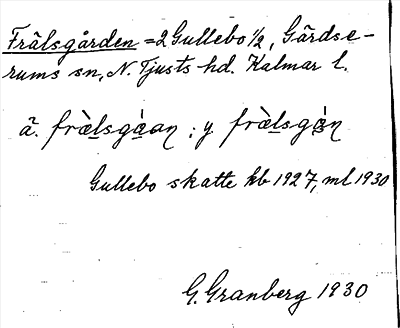 Frälsgården = 2 Gullebo 1/2, Gärdse-
rums sn, N. Tjusts hd. Kalmar l.
ä. fràlsgàan ; y fràlsgòn
Gullebo skatte kb 1927, ml 1930
G. Granberg 1930